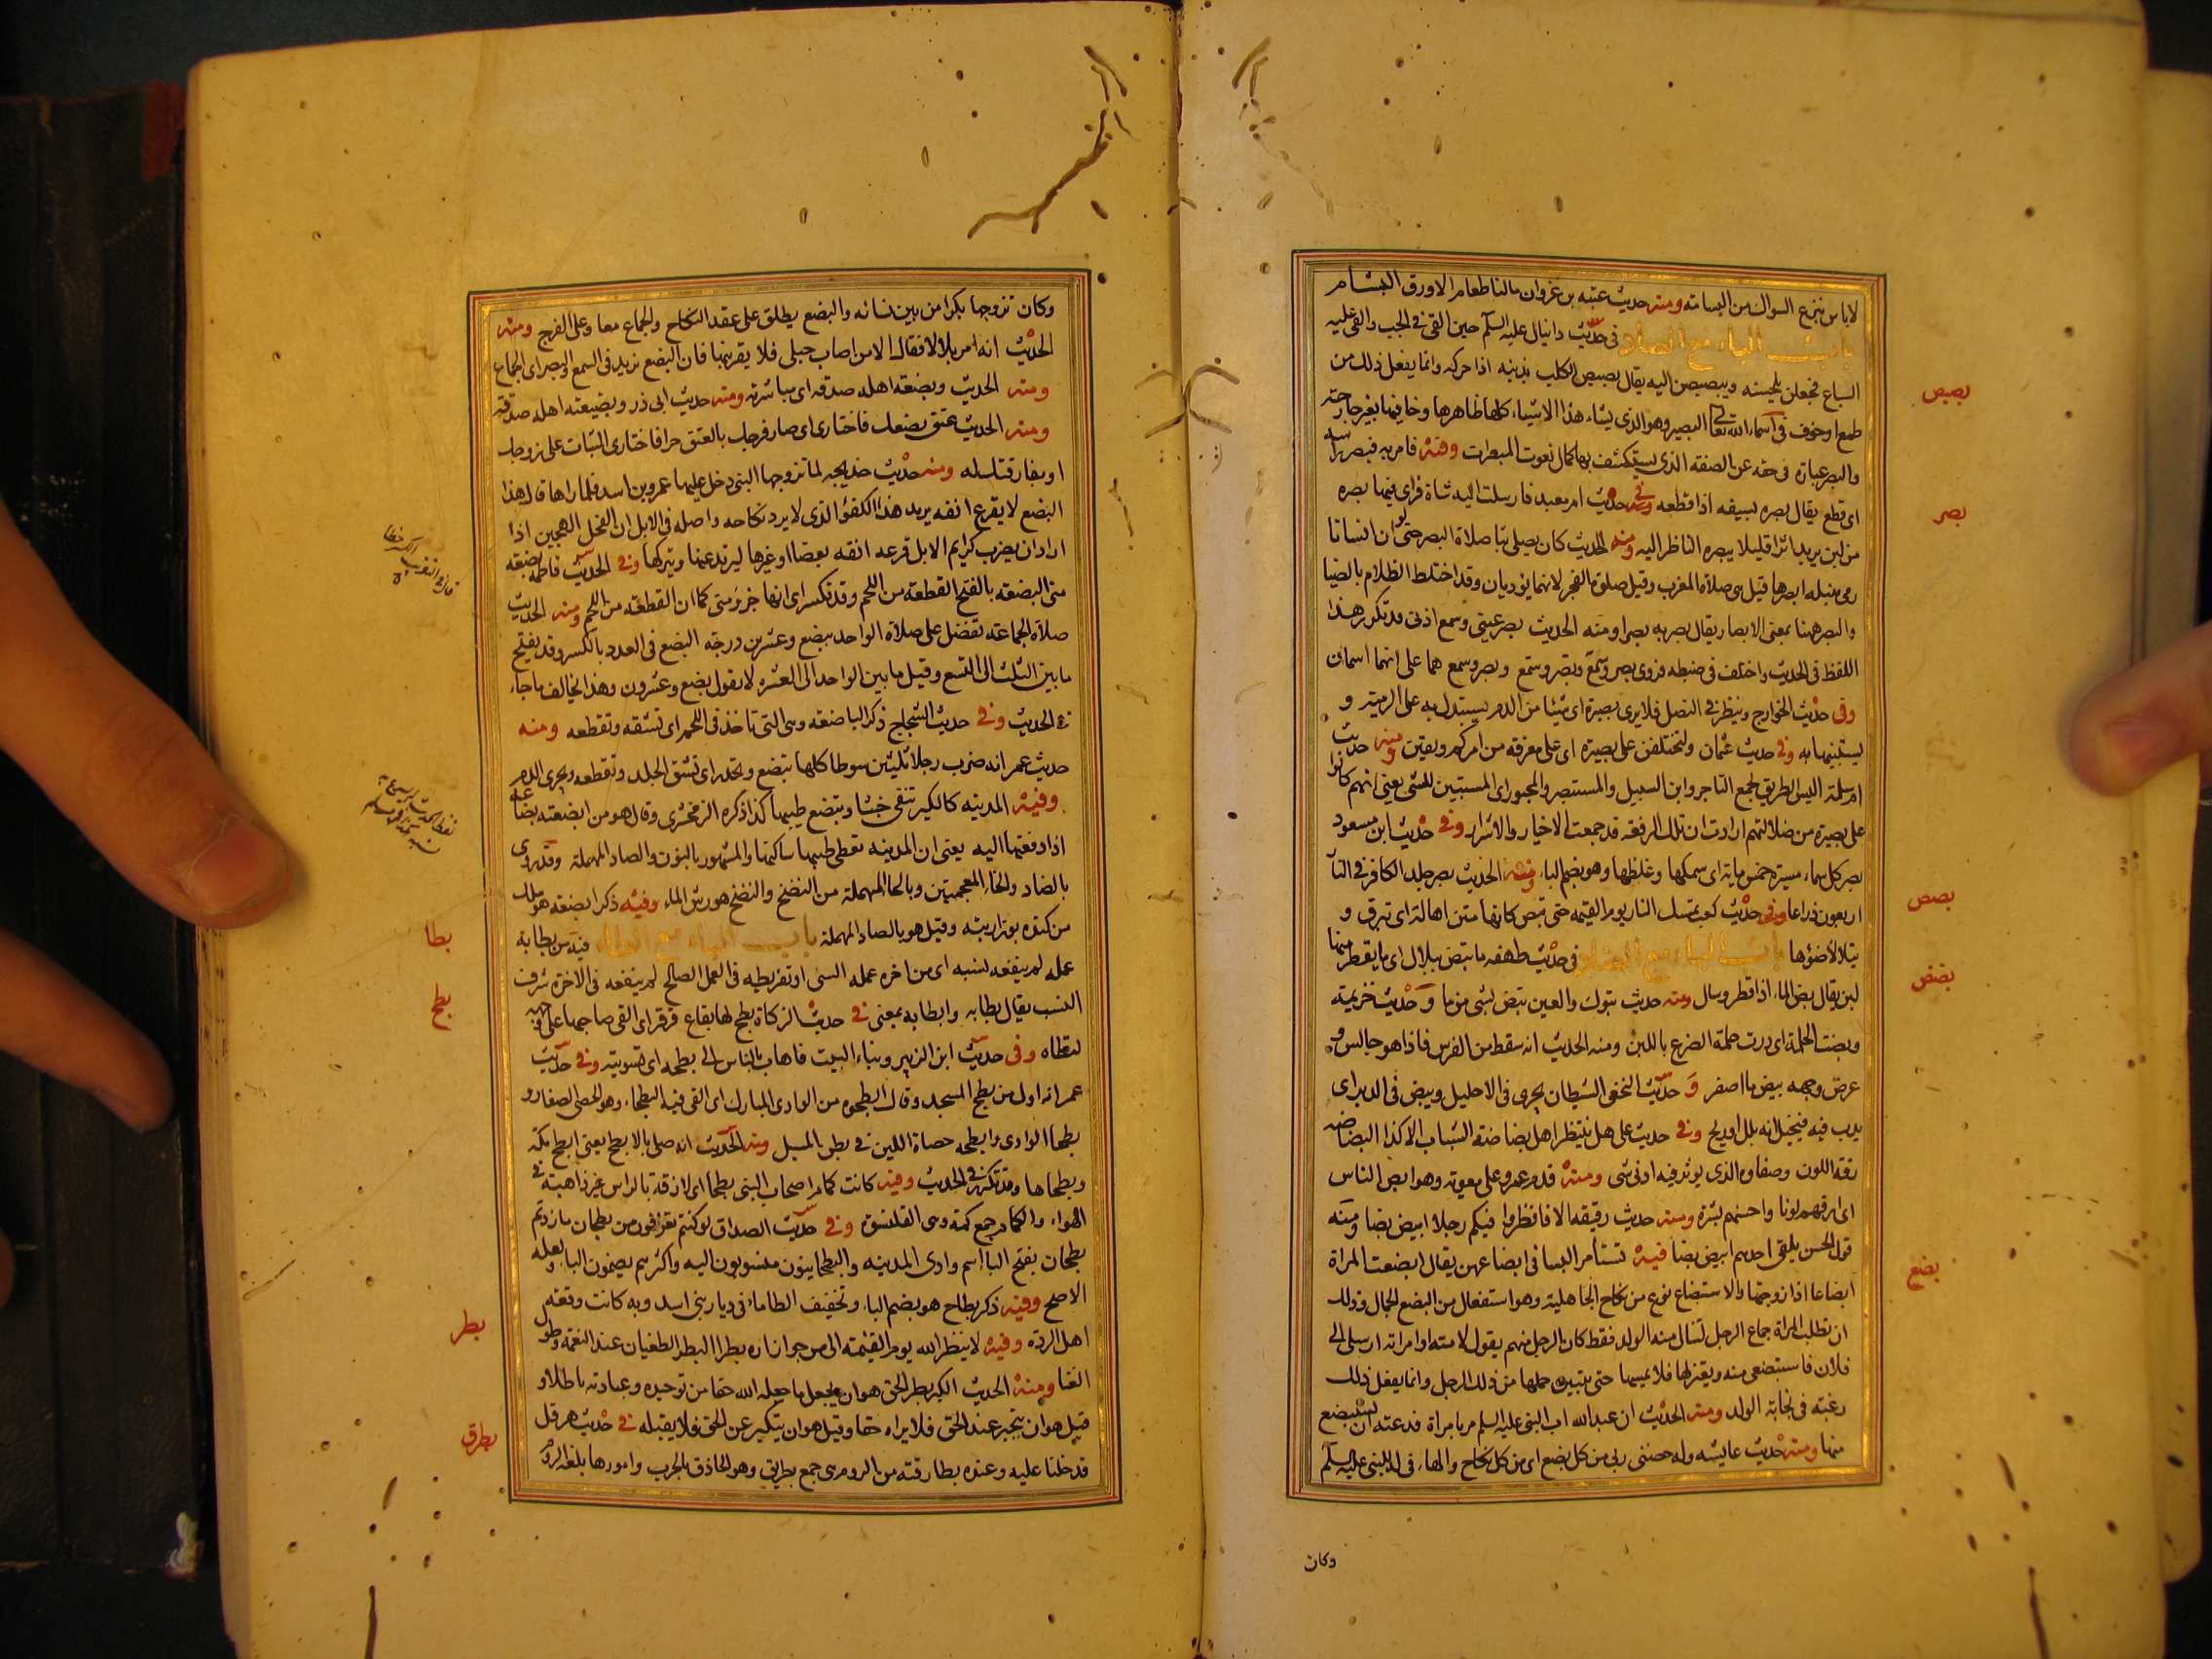 لاباس بنزع السواك من البسامة ومنه حديث عتبه بن غزوان مالنا طعام الاورق البشام
باب الباء مع الصاد في حديث دانيال عليه السلم حين القى في الجب والقى عليه
السباع فجعلن يلحسنه ويبصبصن اليه يقال بصبص الكلب بذنبه اذا حركه وانما يفعل ذلك من
بصبص
طمع او خوف في اسماء الله تعالى البصير وهو الذي يشاهد الاشياء كلها ظاهرها وخافيها بغير جارحة
والبصر عبارة في حقه عن الصفه الذي ينكشف بها كمال نعوت المبصرات وفيه فامر به فبصر راسه
اي قطع يقال بصره بسيفه اذا قطعه وفي حديث ام معبد فارسلت اليه شاة فراى فيها بصره
بصر
من لبن يريد اثرا قليلا يبصره الناظر اليه ومنه الحديث كان يصلي بنا صلاة البصر حتى لو ان انسانا
رمى بنبله ابصرها قيل هي صلاة المغرب وقيل صلوة الفجر لانهما يؤديان وقد اختلط الظلام بالضيا
والبصر ههنا بمعنى الابصار يقال بصر به بصرا ومنه الحديث بصر عيني وسمع اذني قد تكرر هذا
اللفظ في الحديث واختلف في ضبطه فروى بصر وسمع وبصر وسمع وبصر وسمع هما على انهما اسمان
وفي حديث الخوارج وينظر في النصل فلا يرى بصيرة اي شيئا من الدم يستدل به على الرمية و
يستبينها به وفي حديث عثمان ولتختلفن على بصيرة اي على معرفة من امركم ويقين ومنه حديث
ام سلمة اليس الطريق يجمع التاجر وابن السبيل والمستبصر والمجبور اي المستبين للشي يعني انهم كانوا
على بصيرة من ضلالتهم ارادت ان تلك الرفقه قد جمعت الاخيار والاشرار وفي حديث ابن مسعود
بصر كل سماء مسيرة خمس ماية اي سمكها وغلظها وهو بضم الباء ومنه الحديث بصر جلد الكافر في النار
اربعون ذراعا وفي حديث كعب تمسك النار يوم القيمه حتى تبص كانها متن اهالة اي تبرق و
بصص
يتلالأ ضؤها باب الباء مع الضاد في حديث طهفه ما تبض ببلال اي ما يقطر منها
لبن يقال بض الماء اذا قطر وسال ومنه حديث تبوك والعين تبض بشي من ما و حديث خزيمة
بضض
وبضت الحلمة اي درت حلمة الضرع باللبن ومنه الحديث انه سقط من الفرس فاذا هو جالس و
عرض وجهه يبض ما اصفر و حديث النخعي الشيطان يجري في الاحليل ويبض في الدبر اي
يدب فيه فيخيل انه بلل او ريح وفي حديث علي هل ينتظر اهل بضاضة الشباب الا كذا البضاضه
رقة اللون وصفاوه الذي يوثر فيه ادنى شي ومنه قدم عمرو على معوية وهو ابض الناس
اي ارقهم لونا واحسنهم بشرة ومنه حديث رقيقه الا فانظروا فيكم رجلا ابيض بضا ومنه
قول الحسن يلقى احدهم ابيض بضا فيه تستأمر النسا في ابضاعهن يقال ابضعت المراة
بضع
ابضاعا اذا زوجتها والاستبضاع نوع من نكاح الجاهلية وهو استفعال من البضع الجماع وذلك
ان تطلب المراة جماع الرجل لتنال منه الولد فقط كان الرجل منهم يقول لامته او امراته ارسلي الى
فلان فاستبضعي منه ويعتزلها فلا يمسها حتى يتبين حملها من ذلك الرجل وانما يفعل ذلك
رغبته في نجابة الولد ومنه الحديث ان عبد الله اب النبي عليه السلم مر بامراة فدعته ان يستبضع
منها ومنه حديث عايشه وله حصنني ربي من كل بضع اي من كل نكاح والهاء في له للنبي عليه السلم
وكان
وكان تزوجها بكرا من بين نسائه والبضع يطلق على عقد النكاح والجماع معا وعلى الفرج ومنه
الحديث انه امر بلالا فقال الا من اصاب حبلى فلا يقربنها فان البضع يزيد في السمع والبصر اي الجماع
ومنه الحديث وبضعه اهله صدقه اي مباشرته ومنه حديث ابي ذر وبضيعته اهله صدقة
ومنه الحديث عتق بضعك فاختاري اي صار فرجك بالعتق حرا فاختاري الثبات على زوجك
او مفارقته ومنه حديث خديجه لما تزوجها النبي دخل عليها عمرو بن اسد فلما راها قال هذا
البضع لا يقرع انفه يريد هذا الكفؤ الذي لا يرد نكاحه واصله في الابل ان الفحل الهجين اذا
اراد ان يضرب كرايم الابل قرعه انفه بعصا او غيرها ليرتد عنها ويتركها وفي الحديث فاطمه بضعه
مني البضعه بالفتح القطعه من اللحم وقد تكسر اي انها جزؤ مني كما ان القطعه من اللحم ومنه الحديث
صلاة الجماعة تفضل على صلاة الواحد ببضع وعشرين درجه البضع في العدد بالكسر وقد يفتح
ما بين الثلث الى التسع وقيل ما بين الواحد الى العشره لا يقول بضع وعشرون وهذا يخالف ما جاء
في الحديث وفي حديث الشجاج ذكر الباضعه وهي التي تاخذ في اللحم اي تشقه وتقطعه ومنه
حديث عمر انه ضرب رجلا ثلثين سوطا كلها تبضع وتحدر اي تشق الجلد وتقطعه ويجري الدم
وفيه المدينه كالكير تنفي خبثا وتبضع طيبها كذا ذكره الزمخشري وقال هو من ابضعته بضاعه
اذا دفعتها اليه يعني ان المدينه تعطي طيبها ساكنها والمشهور بالنون والصاد المهملة وقد روى
بالضاد والخاء المعجمتين وبالحاء المهملة من النضح والنضخ هو رش الماء وفيه ذكر ابضعه هو ملك
من كنده بوزن اربنه وقيل هو بالصاد المهملة باب الباء مع الطاء فيه من بطا به
بطا
عمله لم ينفعه نسبه اي من اخره عمله السي او تفريطه في العمل الصالح لم ينفعه في الاخرة شرف
النسب يقال بطا به وابطا به بمعنى في حديث الزكاة بطح لها بقاع قرقر اي القي صاحبها على وجهه
بطح
لتطاه وفي حديث ابن الزبير وبناء البيت فاهاب بالناس الى بطحه اي تسويته وفي حديث
عمر انه اول من بطح المسجد وقال ابطحوه من الوادي المبارك اي القى فيه البطحاء وهو الحصى الصغار و
بطحا الوادي وابطحه حصاة اللين في بطن المسيل ومنه الحديث انه صلى بالابطح يعني ابطح مكة
وبطحاها وقد تكرر في الحديث وفيه كانت كمام اصحاب النبي بطحا اي لازقة بالراس غير ذاهبة في
الهواء والكمام جمع كمه وهي القلنسوة وفي حديث الصداق لو كنتم تغرفون من بطحان ما زدتم
بطحان بفتح البا اسم وادي المدينه والبطحانيون منسوبون اليه واكثرهم يضمون البا ولعله
الاصح وفيه ذكر بطاح هو بضم الباء وتخفيف الطا ماء في ديار بني اسد وبه كانت وقعة
اهل الردة وفيه لا ينظر الله يوم القيمة الى من جر ازاره بطرا البطر الطغيان عند النعمة وطول
بطر
الغنا ومنه الحديث الكبر بطر الحق هو ان يجعل ما جعله الله حقا من توحيده وعبادته باطلا و
قيل هو ان يتجبر عند الحق فلا يراه حقا وقيل هو ان يتكبر عن الحق فلا يقبله في حديث هرقل
بطرق
قد خلنا عليه وعنده بطارقته من الروم هي جمع بطريق وهو الحاذق بالحرب وامورها بلغة الروم